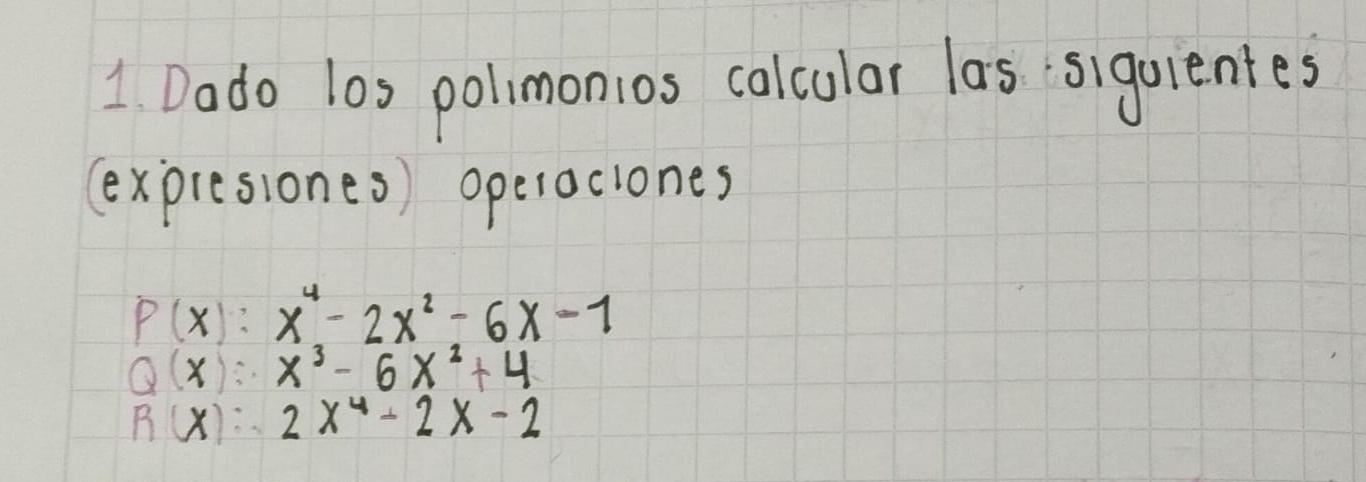 1. Dado los polimonios calcular las siguientes
(expresiones) operaciones
P(x): x⁴ - 2x² - 6x - 1
Q(x): x³ - 6x² + 4
R(x): 2x⁴ - 2x - 2